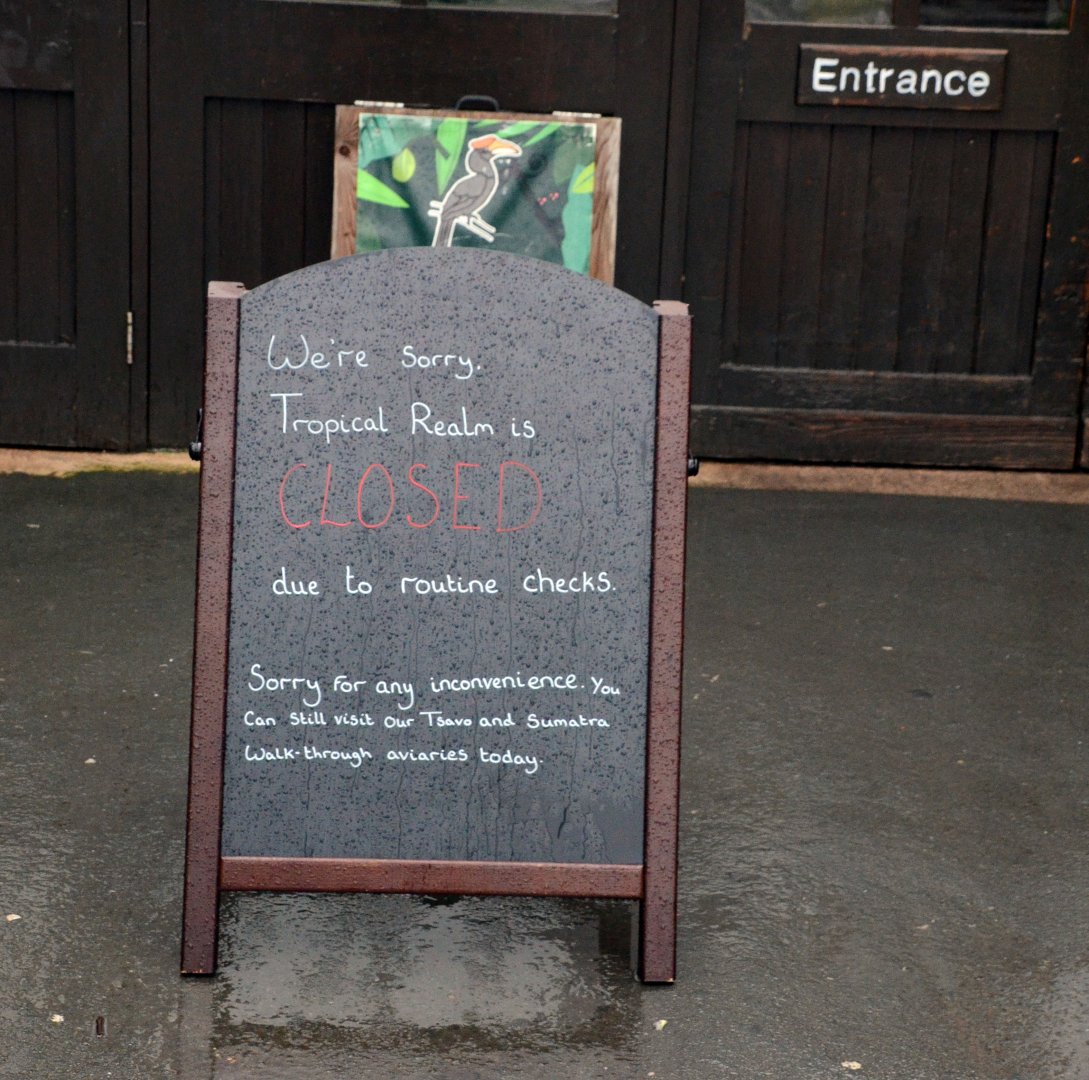 Entrance
We're Sorry.
Tropical Realm is
CLOSED
due to routine checks.
Sorry for any inconvenience. You
Can Still visit our Tsavo and Sumatra
Walk-through aviaries today.